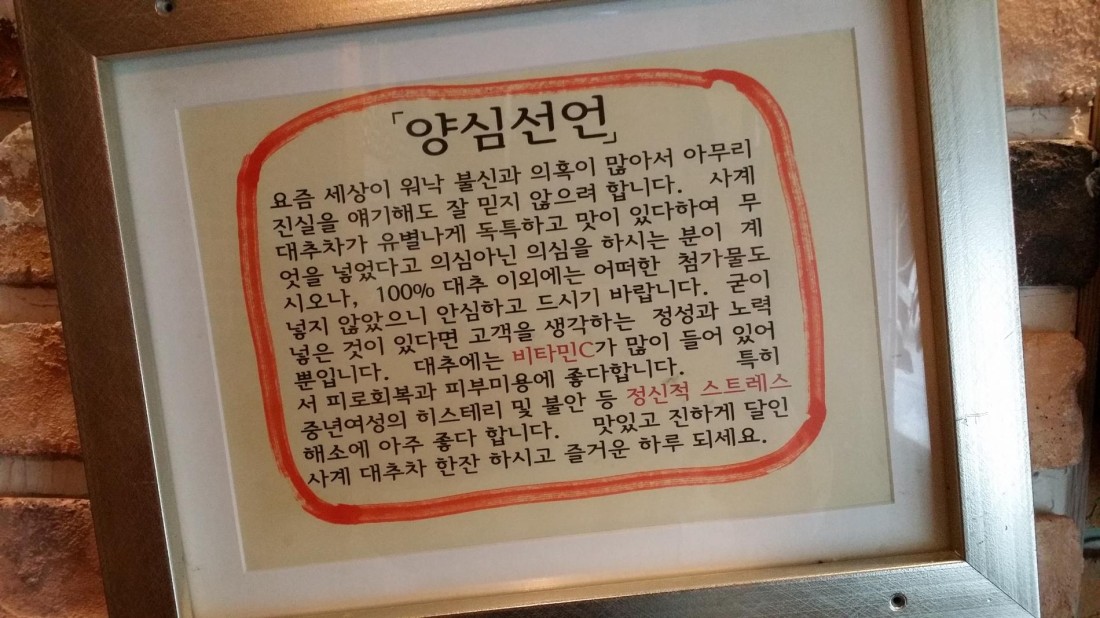 「양심선언」
요즘 세상이 워낙 불신과 의혹이 많아서 아무리
진실을 얘기해도 잘 믿지 않으려 합니다. 사계
대추차가 유별나게 독특하고 맛이 있다하여 무
엇을 넣었다고 의심아닌 의심을 하시는 분이 계
시오나, 100% 대추 이외에는 어떠한 첨가물도
넣지 않았으니 안심하고 드시기 바랍니다. 굳이
넣은 것이 있다면 고객을 생각하는 정성과 노력
뿐입니다. 대추에는 비타민C가 많이 들어 있어
서 피로회복과 피부미용에 좋다합니다. 특히
중년여성의 히스테리 및 불안 등 정신적 스트레스
해소에 아주 좋다 합니다. 맛있고 진하게 달인
사계 대추차 한잔 하시고 즐거운 하루 되세요.